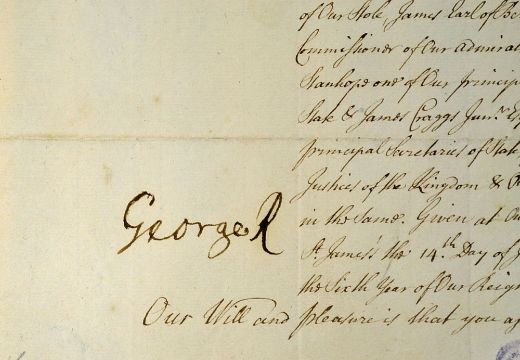 of Our Stole, James Earl of Be
Commissioner of Our admira
Stanhope one of Our principa
State & James Craggs Junr. Es
principal Secretaries of State
Justices of the Kingdom &
in the Same. Given at Ou
George R
St. James's the 14th. Day of J
the Sixth Year of Our Reign
Our Will and pleasure is that you a